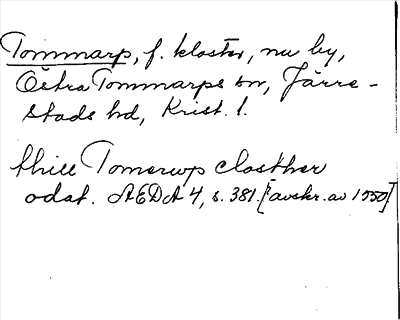 Tommarp, f. kloster, nu by,
Östra Tommarps sn, Järre-
stads hd, Krist. l.
thill Tomerup closther
odat. AEDA 4, s. 381. [avskr. av 1550]